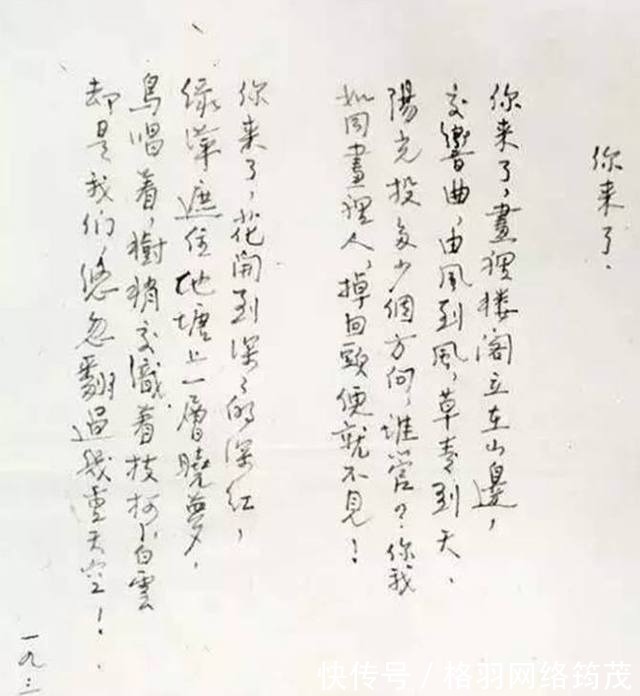 你来了．
你来了，畫裡楼阁立在山邊，
交響曲，由風到風，草青到天．
陽光投多少個方向，誰管？你我
如同畫裡人，掉回頭便就不見！
你来了，花開到深深的深红，
绿萍遮住池塘上一層曉夢，
鳥唱着，樹梢交織着枝柯，白雲
却是我们，悠忽翻過幾重天空！
一九．
快传号／格羽网络筠茂